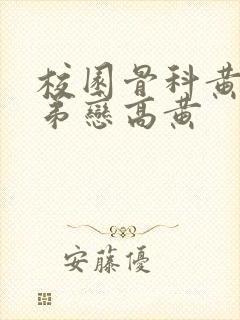 校園骨科黃
弟戀高黃
安藤優